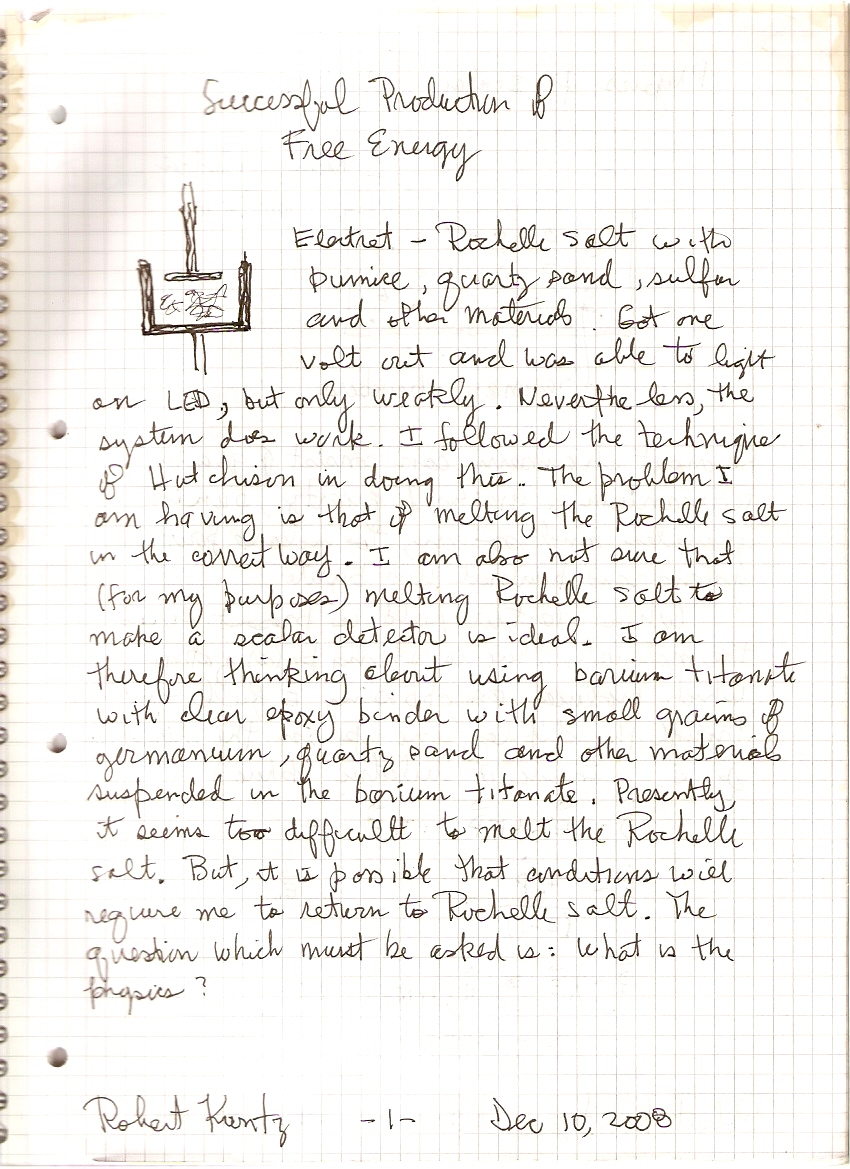 Successful Production of
Free Energy
Electret - Rochelle salt with
pumice, quartz sand, sulfur
and other materials. Got one
volt out and was able to light
an LED, but only weakly. Nevertheless, the
system does work. I followed the technique
of Hutchison in doing this. The problem I
am having is that of melting the Rochelle salt
in the correct way. I am also not sure that
(for my purposes) melting Rochelle salt to
make a scalar detector is ideal. I am
therefore thinking about using barium titanate
with clear epoxy binder with small grains of
germanium, quartz sand and other materials
suspended in the barium titanate. Presently,
it seems too difficult to melt the Rochelle
salt. But, it is possible that conditions will
require me to return to Rochelle salt. The
question which must be asked is: What is the
physics?
Robert Kuntz -1- Dec 10, 2008